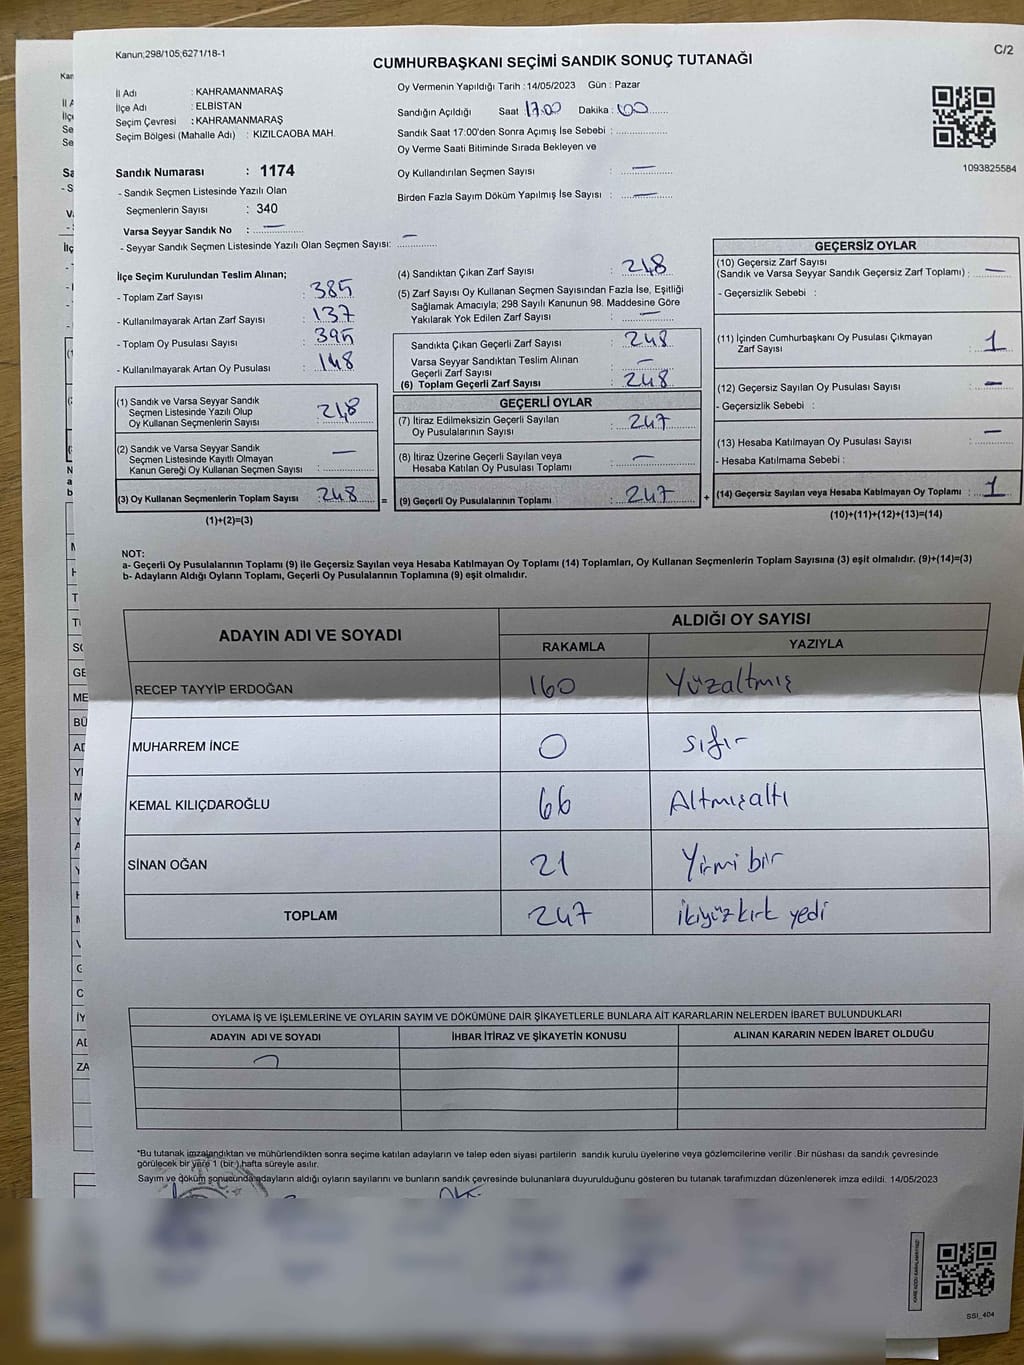 Kanun;298/105;6271/18-1
C/2
CUMHURBAŞKANI SEÇİMİ SANDIK SONUÇ TUTANAĞI
İl Adı : KAHRAMANMARAŞ
İlçe Adı : ELBİSTAN
Seçim Çevresi : KAHRAMANMARAŞ
Seçim Bölgesi (Mahalle Adı) : KIZILCAOBA MAH.
Oy Vermenin Yapıldığı Tarih : 14/05/2023 Gün : Pazar
Sandığın Açıldığı Saat 17:00 Dakika : 00
Sandık Saat 17:00'den Sonra Açımış İse Sebebi :
Oy Verme Saati Bitiminde Sırada Bekleyen ve
Oy Kullandırılan Seçmen Sayısı : —
Birden Fazla Sayım Döküm Yapılmış İse Sayısı : —
1093825584
Sandık Numarası : 1174
- Sandık Seçmen Listesinde Yazılı Olan
Seçmenlerin Sayısı : 340
Varsa Seyyar Sandık No : —
- Seyyar Sandık Seçmen Listesinde Yazılı Olan Seçmen Sayısı: —
İlçe Seçim Kurulundan Teslim Alınan;
- Toplam Zarf Sayısı : 385
- Kullanılmayarak Artan Zarf Sayısı : 137
- Toplam Oy Pusulası Sayısı : 395
- Kullanılmayarak Artan Oy Pusulası : 148
(1) Sandık ve Varsa Seyyar Sandık
Seçmen Listesinde Yazılı Olup
Oy Kullanan Seçmenlerin Sayısı : 248
(2) Sandık ve Varsa Seyyar Sandık
Seçmen Listesinde Kayıtlı Olmayan
Kanun Gereği Oy Kullanan Seçmen Sayısı : —
(3) Oy Kullanan Seçmenlerin Toplam Sayısı : 248 =
(1)+(2)=(3)
(4) Sandıktan Çıkan Zarf Sayısı : 248
(5) Zarf Sayısı Oy Kullanan Seçmen Sayısından Fazla İse, Eşitliği
Sağlamak Amacıyla; 298 Sayılı Kanunun 98. Maddesine Göre
Yakılarak Yok Edilen Zarf Sayısı : —
Sandıkta Çıkan Geçerli Zarf Sayısı : 248
Varsa Seyyar Sandıktan Teslim Alınan
Geçerli Zarf Sayısı : —
(6) Toplam Geçerli Zarf Sayısı : 248
GEÇERLİ OYLAR
(7) İtiraz Edilmeksizin Geçerli Sayılan
Oy Pusulalarının Sayısı : 247
(8) İtiraz Üzerine Geçerli Sayılan veya
Hesaba Katılan Oy Pusulası Toplamı : —
(9) Geçerli Oy Pusulalarının Toplamı : 247 +
GEÇERSİZ OYLAR
(10) Geçersiz Zarf Sayısı
(Sandık ve Varsa Seyyar Sandık Geçersiz Zarf Toplamı) : —
- Geçersizlik Sebebi :
(11) İçinden Cumhurbaşkanı Oy Pusulası Çıkmayan
Zarf Sayısı : 1
(12) Geçersiz Sayılan Oy Pusulası Sayısı : —
- Geçersizlik Sebebi :
(13) Hesaba Katılmayan Oy Pusulası Sayısı : —
- Hesaba Katılmama Sebebi :
(14) Geçersiz Sayılan veya Hesaba Katılmayan Oy Toplamı : 1
(10)+(11)+(12)+(13)=(14)
NOT:
a- Geçerli Oy Pusulalarının Toplamı (9) ile Geçersiz Sayılan veya Hesaba Katılmayan Oy Toplamı (14) Toplamları, Oy Kullanan Seçmenlerin Toplam Sayısına (3) eşit olmalıdır. (9)+(14)=(3)
b- Adayların Aldığı Oyların Toplamı, Geçerli Oy Pusulalarının Toplamına (9) eşit olmalıdır.
ADAYIN ADI VE SOYADI
ALDIĞI OY SAYISI
RAKAMLA YAZIYLA
RECEP TAYYİP ERDOĞAN 160 Yüzaltmış
MUHARREM İNCE 0 sıfır
KEMAL KILIÇDAROĞLU 66 Altmışaltı
SİNAN OĞAN 21 Yirmi bir
TOPLAM 247 ikiyüz kırk yedi
OYLAMA İŞ VE İŞLEMLERİNE VE OYLARIN SAYIM VE DÖKÜMÜNE DAİR ŞİKAYETLERLE BUNLARA AİT KARARLARIN NELERDEN İBARET BULUNDUKLARI
ADAYIN ADI VE SOYADI İHBAR İTİRAZ VE ŞİKAYETİN KONUSU ALINAN KARARIN NEDEN İBARET OLDUĞU
*Bu tutanak imzalandıktan ve mühürlendikten sonra seçime katılan adayların ve talep eden siyasi partilerin sandık kurulu üyelerine veya gözlemcilerine verilir .Bir nüshası da sandık çevresinde
görülecek bir yere 1 (bir) hafta süreyle asılır.
Sayım ve döküm sonucunda adayların aldığı oyların sayılarını ve bunların sandık çevresinde bulunanlara duyurulduğunu gösteren bu tutanak tarafımızdan düzenlenerek imza edildi. 14/05/2023
SSİ_404